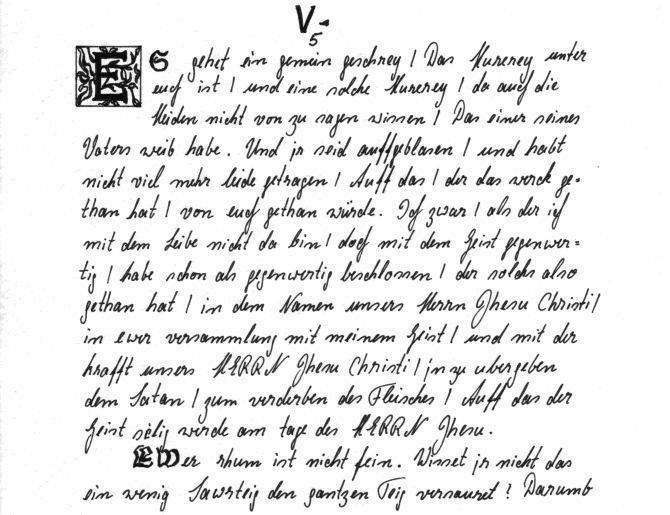 V.
5
ES gehet ein gemein geschrey / Das Hurerey unter
euch ist / und eine solche Hurerey / da auch die
Heiden nicht von zu sagen wissen / Das einer seines
Vaters weib habe. Und jr seid auffgeblasen / und habt
nicht viel mehr leide getragen / Auff das / der das werck ge=
than hat / von euch gethan würde. Ich zwar / als der ich
mit dem Leibe nicht da bin / doch mit dem Geist gegenwer=
tig / habe schon als gegenwertig beschlossen / der solchs also
gethan hat / in dem Namen unsers Herrn Jhesu Christi /
in ewer versammlung mit meinem Geist / und mit der
krafft unsers HERRN Jhesu Christi / jn zu ubergeben
dem Satan / zum verderben des Fleisches / Auff das der
Geist selig werde am tage des HERRN Jhesu.
EWer rhum ist nicht fein. Wisset jr nicht das
ein wenig Sawrteig den gantzen Teig versauret? Darumb